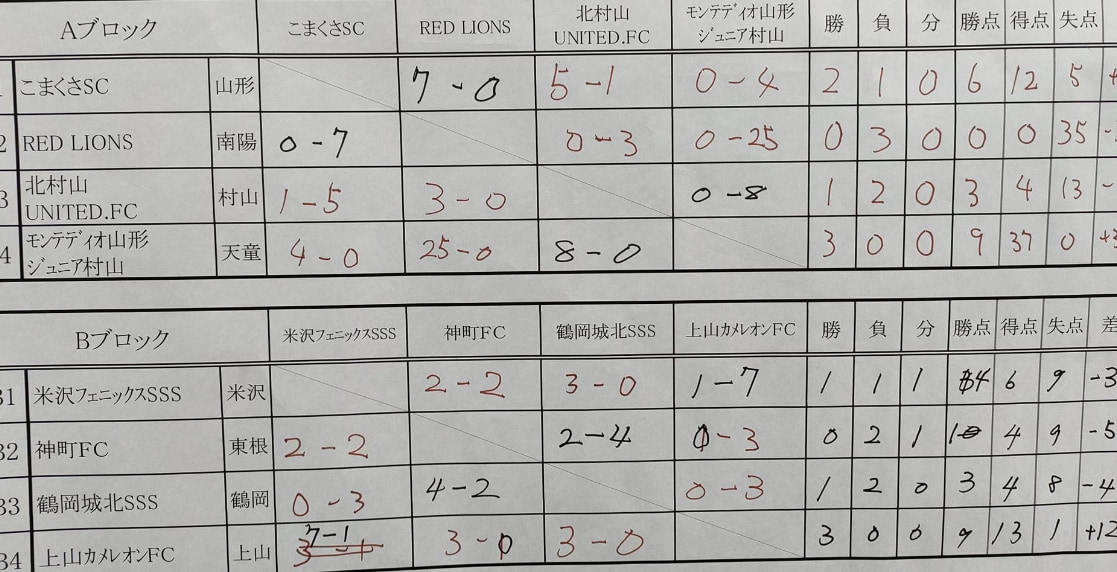 Aブロック こまくさSC RED LIONS 北村山 UNITED.FC モンテディオ山形 ジュニア村山 勝 負 分 勝点 得点 失点
こまくさSC 山形 7-0 5-1 0-4 2 1 0 6 12 5
2 RED LIONS 南陽 0-7 0-3 0-25 0 3 0 0 0 35
3 北村山 UNITED.FC 村山 1-5 3-0 0-8 1 2 0 3 4 13 -
4 モンテディオ山形 ジュニア村山 天童 4-0 25-0 8-0 3 0 0 9 37 0
Bブロック 米沢フェニックスSSS 神町FC 鶴岡城北SSS 上山カメレオンFC 勝 負 分 勝点 得点 失点 差
31 米沢フェニックスSSS 米沢 2-2 3-0 1-7 1 1 1 4 6 9 -3
32 神町FC 東根 2-2 2-4 0-3 0 2 1 1 4 9 -5
33 鶴岡城北SSS 鶴岡 0-3 4-2 0-3 1 2 0 3 4 8 -4
34 上山カメレオンFC 上山 7-1 3-0 3-0 3 0 0 9 13 1 +12